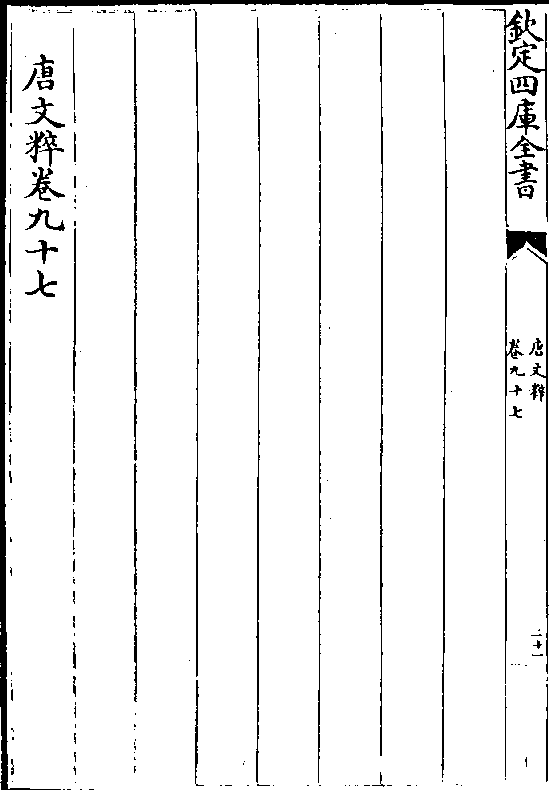 欽定四庫全書
唐文粹
卷九十七
二十一
唐文粹卷九十七